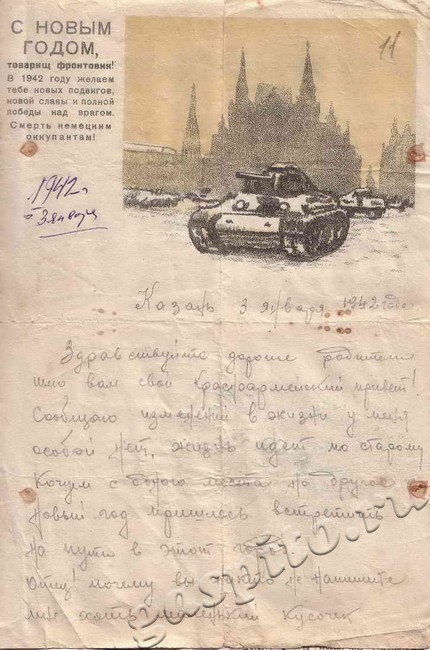 С НОВЫМ
ГОДОМ,
товарищ фронтовик!
В 1942 году желаем
тебе новых подвигов,
новой славы и полной
победы над врагом.
Смерть немецким
оккупантам!
11
1942г
3 января
Казань 3 января 1942 года
Здравствуйте дорогие родители
шлю вам свой Красноармейский привет!
Сообщаю изменений в жизни у меня
особой нет, жизнь идет по старому
Кочуем с одного места на другое
Новый год пришлось встретить
на пути в этот город
Отец! почему вы никто не напишите
мне хоть маленький кусочек